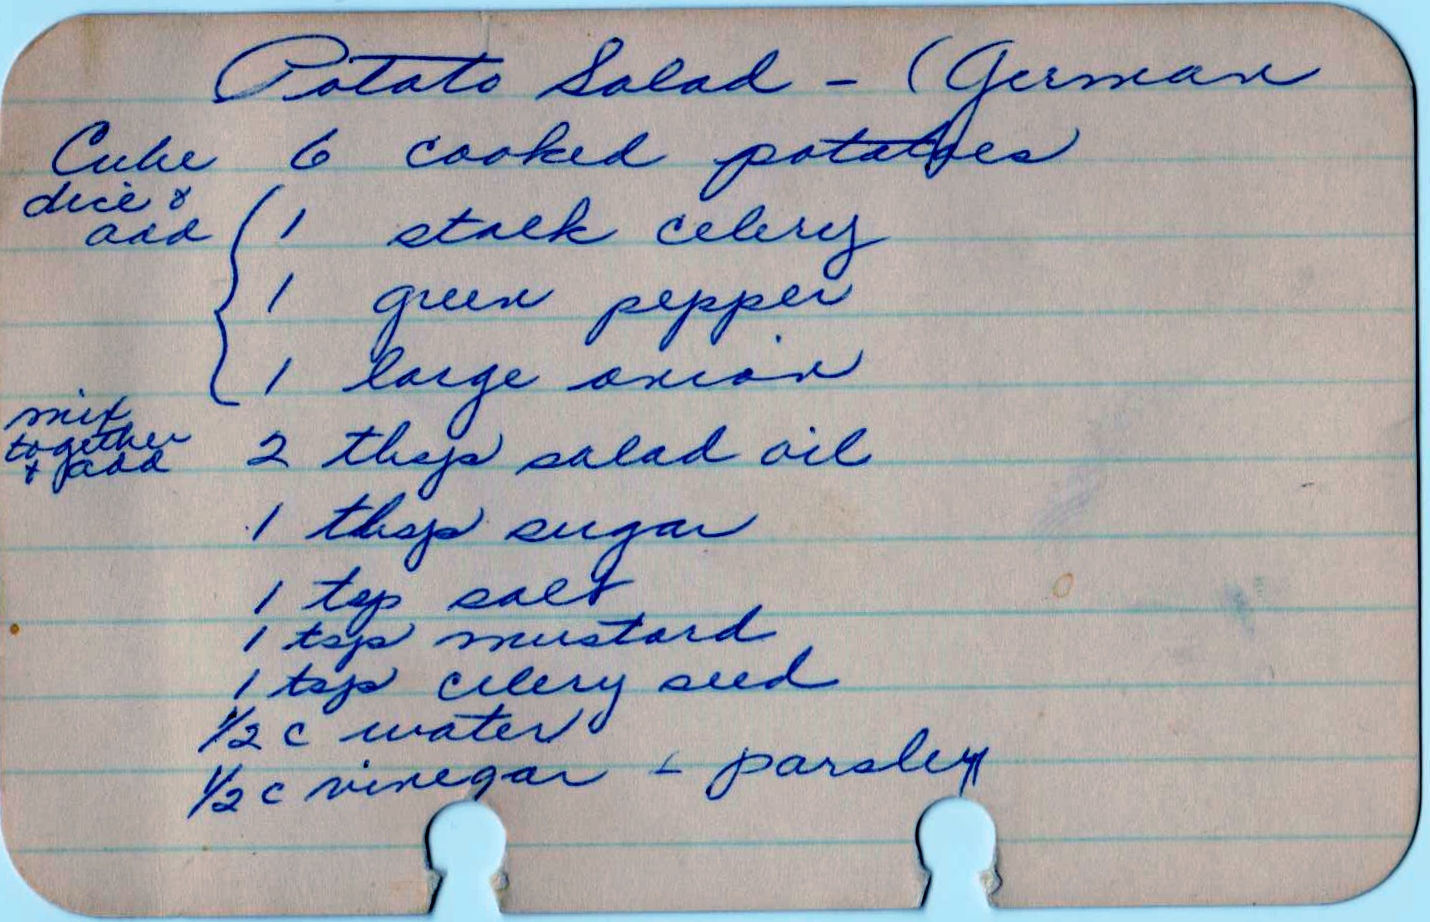 Potato Salad - (German
Cube 6 cooked potatoes
dice &
add { 1 stalk celery
1 green pepper
1 large onion
mix
together
& add 2 tbsp salad oil
1 tbsp sugar
1 tsp salt
1 tsp mustard
1 tsp celery seed
1/2 c water
1/2 c vinegar - parsley